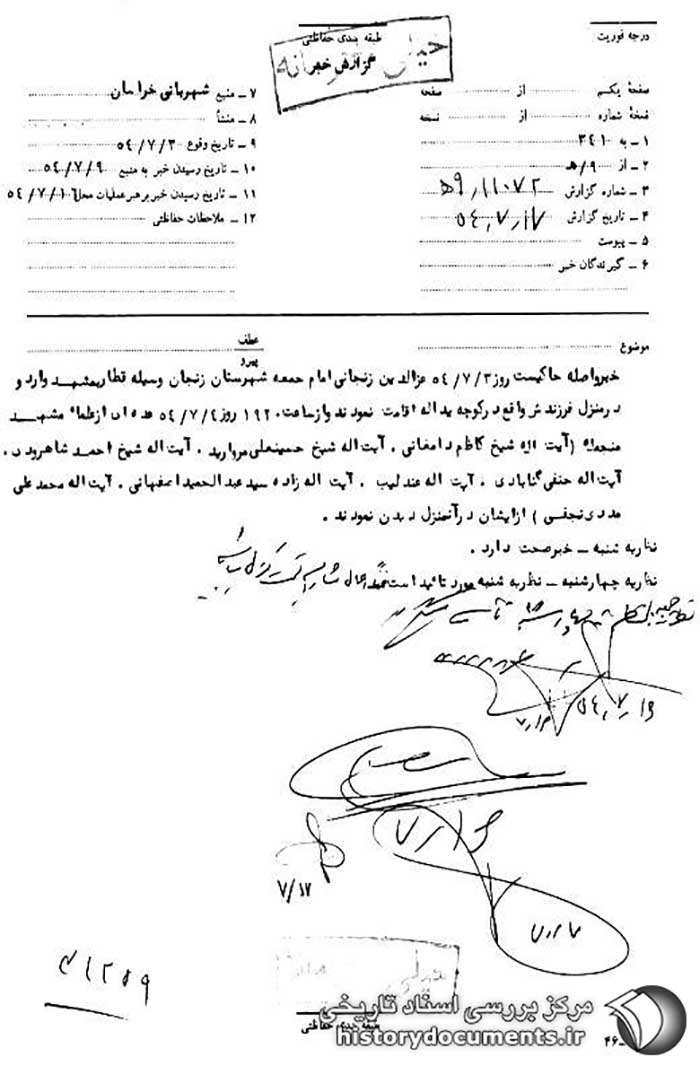 درجه فوریت
طبقه بندی حفاظتی
خیلی محرمانه
گزارش خبر
صفحهٔ یکم ........ از ........ صفحه
نسخهٔ شماره ........ از ........ نسخه
۱ ـ به ۳۴۱
۲ ـ از ۹/ ه‍
۳ ـ شماره گزارش ۱۱۰۷۲ / ۹ ه‍
۴ ـ تاریخ گزارش ۵۴/۷/۱۷
۵ ـ پیوست
۶ ـ گیرندگان خبر
۷ ـ منبع شهربانی خراسان
۸ ـ منشأ
۹ ـ تاریخ وقوع ۵۴/۷/۳
۱۰ ـ تاریخ رسیدن خبر به منبع ۵۴/۷/۹
۱۱ ـ تاریخ رسیدن خبر برهبر عملیات محل ۵۴/۷/۱۶
۱۲ ـ ملاحظات حفاظتی
موضوع
عطف
پیرو
خبر واصله حاکیست روز ۵۴/۷/۳ عزالدین زنجانی امام جمعه شهرستان زنجان وسیله قطار بمشهد وارد و
در منزل فرزندش واقع در کوچه یداله اقامت نمودند و از ساعت ۱۹۲۰ روز ۵۴/۷/۴ عده ای از علماء مشهد
منجمله (آیت اله شیخ کاظم دامغانی ، آیت اله شیخ حسینعلی مروارید ، آیت اله شیخ احمد شاهرودی ،
آیت اله حنفی گنابادی ، آیت اله عندلیب ، آیت اله زاده سید عبدالحمید اصفهانی ، آیت اله محمد علی
مددی نجفی ) از ایشان در آنمنزل دیدن نمودند .
نظریه شنبه ـ خبر صحت دارد .
نظریه چهارشنبه ـ نظریه شنبه مورد تائید است
۵۴/۷/۱۶
۷/۱۶
۷/۱۷
۴۱۲۵۹
مرکز بررسی اسناد تاریخی
طبقه بندی حفاظتی
historydocuments.ir